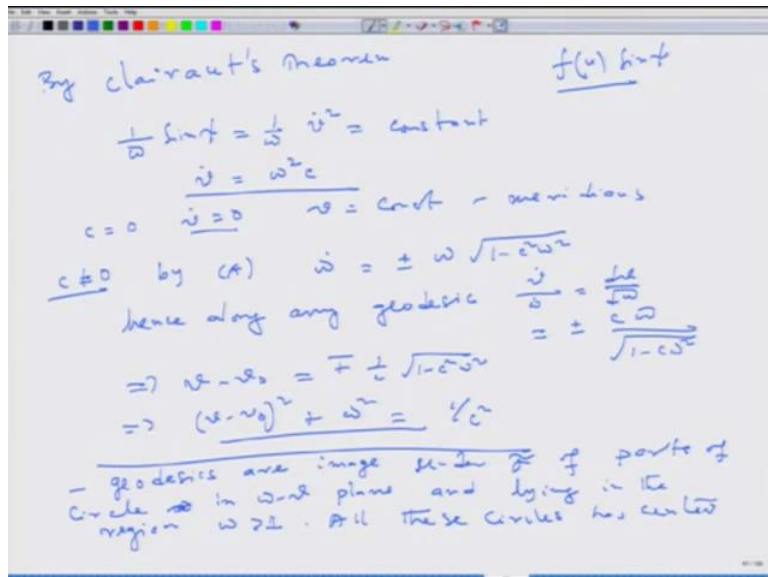 By Clairaut's Theorem f(u) Sin ψ
1/w Sin ψ = 1/w² v̇ = constant
v̇ = w² c
c = 0 v̇ = 0 v = const - meridians
c ≠ 0 by (A) ẇ = ± w √1-c²w²
hence along any geodesic v̇/ẇ = dv/dw
= ± cw/√1-cw²
=> v-v₀ = ∓ 1/c √1-c²w²
=> (v-v₀)² + w² = 1/c²
- geodesics are image under σ̃ of parts of
circle in w-v plane and lying in the
region w>1. All these circles has center